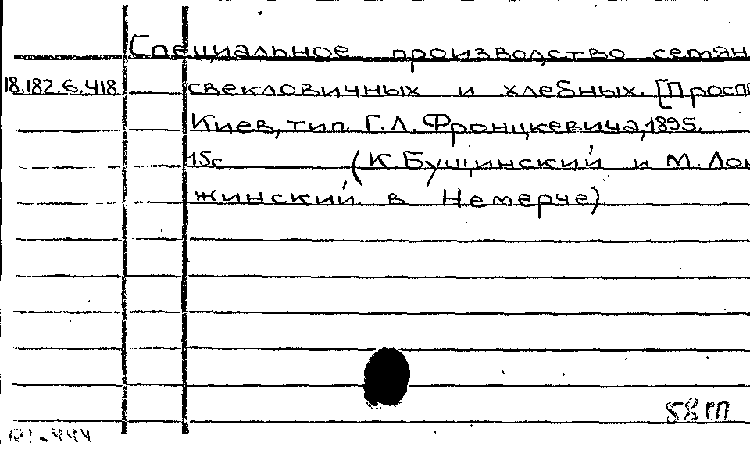 Специальное производство семян
18.182.6.418 свекловичных и хлебных. [Просп
Киев, тип. Г.Л. Фронцкевича, 1895.
15с (К. Бущинский и М. Лон
жинский в Немерче)
58 гп